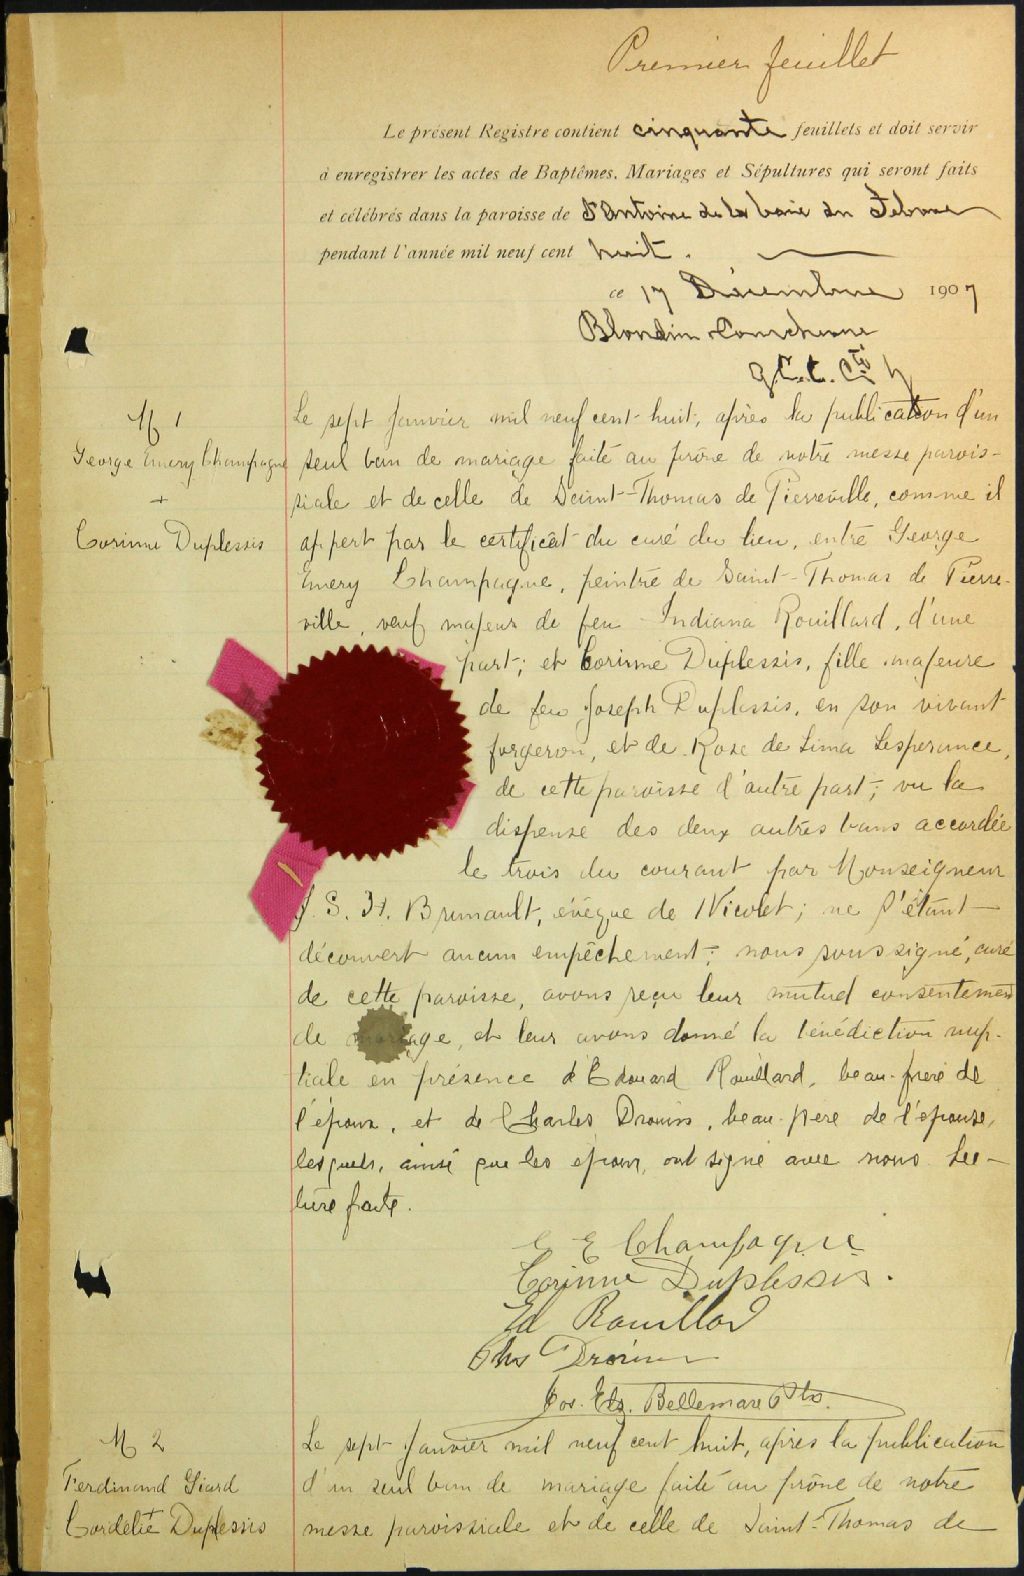 Premier feuillet
Le présent Registre contient cinquante feuillets et doit servir
à enregistrer les actes de Baptêmes, Mariages et Sépultures qui seront faits
et célébrés dans la paroisse de St Antoine de la baie du Febvre
pendant l'année mil neuf cent huit.
ce 17 Décembre 1907
Blondin
M 1
George Emery Champagne
+
Corinne Duplessis
Le sept Janvier mil neuf cent huit, après la publication d'un
seul ban de mariage faite au prône de notre messe parois-
siale et de celle de Saint-Thomas de Pierreville, comme il
appert par le certificat du curé du lieu, entre George
Emery Champagne, peintre de Saint-Thomas de Pierre-
ville, veuf majeur de feu Indiana Rouillard, d'une
part; et Corinne Duplessis, fille majeure
de feu Joseph Duplessis, en son vivant
forgeron, et de Rose de Lima Lesperance,
de cette paroisse d'autre part; vu la
dispense des deux autres bans accordée
le trois du courant par Monseigneur
J. S. H. Brunault, évêque de Nicolet; ne s'étant
découvert aucun empêchement; nous soussigné, curé
de cette paroisse, avons reçu leur mutuel consentement
de mariage, et leur avons donné la bénédiction nup-
tiale en présence d'Edouard Rouillard, beau-frère de
l'époux, et de Charles Drouin, beau-père de l'épouse,
lesquels, ainsi que les époux, ont signé avec nous. Lec-
ture faite.
G E Champagne
Corinne Duplessis.
Ed Rouillard
Chs Drouin
Jos. Elz. Bellemare Ptre.
M 2
Ferdinand Giard
Cordélie Duplessis
Le sept Janvier mil neuf cent huit, après la publication
d'un seul ban de mariage faite au prône de notre
messe paroissiale et de celle de Saint-Thomas de